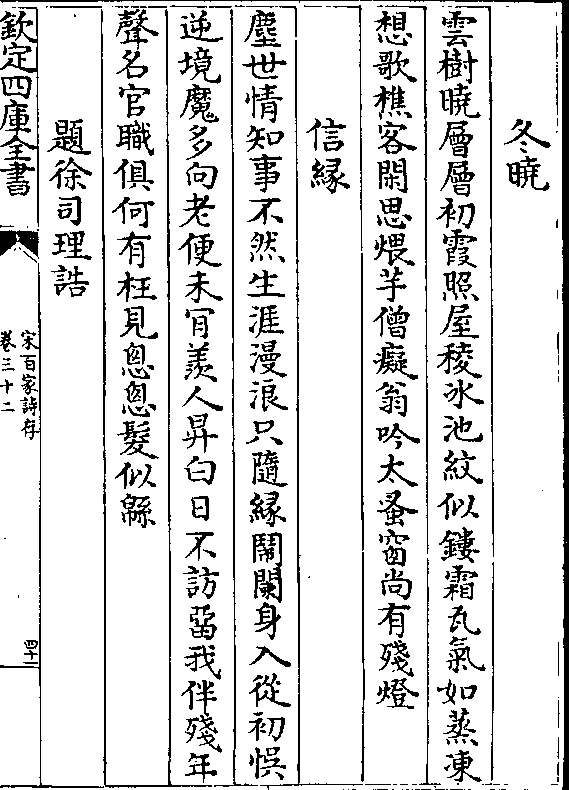 冬曉
雲樹曉層層初霞照屋稜冰池紋似鏤霜瓦氣如蒸凍
想歌樵客閑思煨芋僧癡翁吟太蚤窗尚有殘燈
信縁
塵世情知事不然生涯漫浪只隨縁鬧闌身入從初悞
逆境魔多向老便未肎羨人昇白日不訪畱我伴殘年
聲名官職俱何有枉見悤悤髮似緜
題徐司理誥
欽定四庫全書
宋百家詩存
卷三十二
四十一